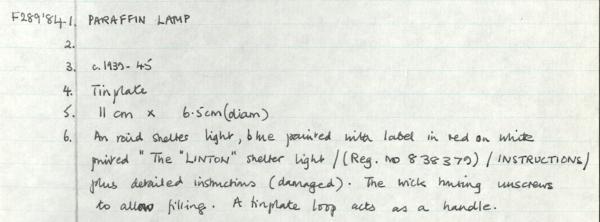 F289'84-1. PARAFFIN LAMP
2.
3. c.1939-45
4. Tinplate
5. 11 cm x 6.5cm (diam)
6. An raid shelter light, blue painted with label in red on white
printed "The "LINTON" shelter light / (Reg. no 838379) / INSTRUCTIONS /
plus detailed instructions (damaged). The wick housing unscrews
to allow filling. A tinplate loop acts as a handle.